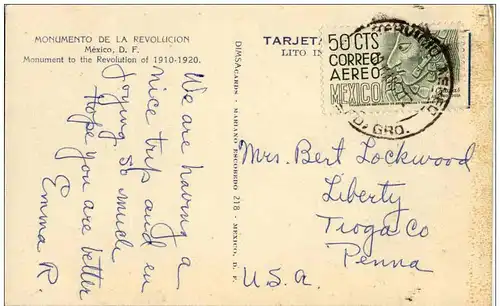 MONUMENTO DE LA REVOLUCION
México, D. F.
Monument to the Revolution of 1910-1920.
We are having a
nice trip and en
joying so much
Hope you are better
Emma R.
DIMSACARDS - MARIANO ESCOBEDO 218 - MEXICO, D. F.
TARJETA
LITO IN
50 CTS
CORREO
AEREO
MEXICO
GRO.
Mrs. Bert Lockwood
Liberty
Tioga Co
Penna
U.S.A.